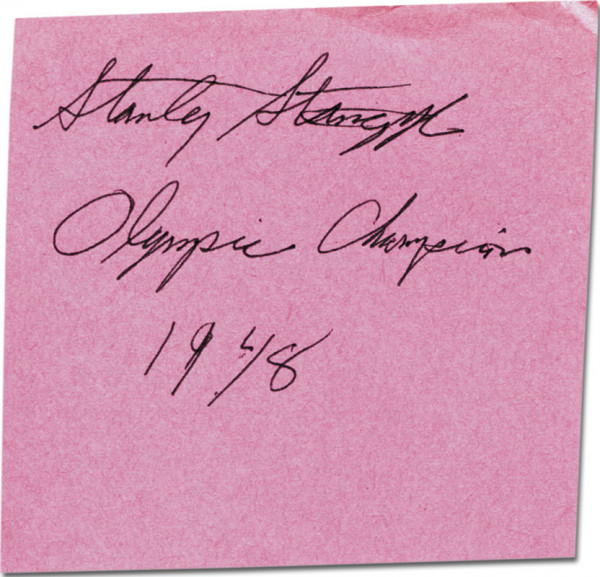 Stanley Stanczyk
Olympic Champion
1948